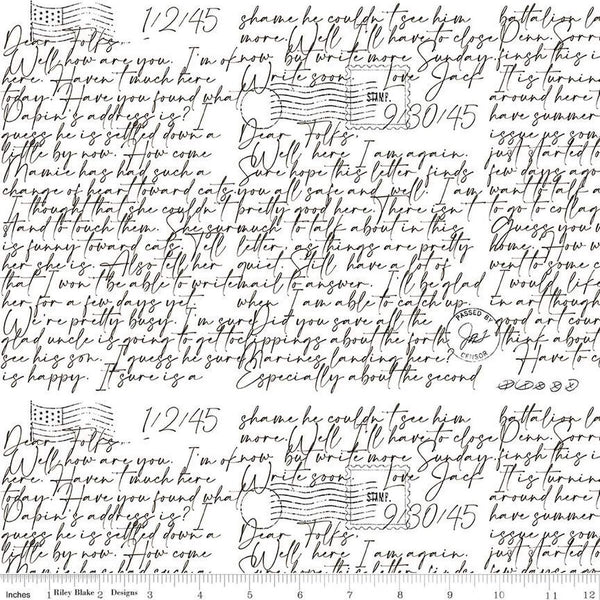 1/2/45
Dear Folks,
Well, how are you. I'm ok
here. Haven't much here
today. Have you found wha
Papin's address is? I
guess he is settled down a
little by now. How come
Mamie has had such a
change of heart toward cats.
I thought that she couldn't
stand to touch them. She sur
is funny toward cats. Tell
her she is. Also tell her
that I won't be able to write
her for a few days yet.
We're pretty busy. I'm sur
glad uncle is going to get to
see his son. I guess he sure
is happy. It sure is a
shame he couldn't see him
more. Well I'll have to close
now but write more Sunday.
Write soon Love Jack
STAMP.
9/30/45
Dear Folks.
Well, here I am again.
Sure hope this letter finds
you all safe and well. I am
pretty good here. There isn't
much to talk about in this
letter, as things are pretty
quiet. Still have a lot of
mail to answer. I'll be glad
when I am able to catch up.
Did you save all the
clippings about the forth
Marines landing here?
Especially about the second
PASSED BY
CENSOR
battation la
Penn. Sorro
finsh this i
It is turnin
around here t
have summer
issue us som
just started to
few days ago
want to talk a
to go to collag
Guess you w
home. How w
went to some c
I would life
in art though
good art cour
think about
Have to cl
1/2/45
Dear Folks,
Well, how are you. I'm ok
here. Haven't much here
today. Have you found wha
Papin's address is? I
guess he is settled down a
little by now. How come
shame he couldn't see him
more. Well I'll have to close
now but write more Sunday.
Write soon Love Jack
STAMP.
9/30/45
Dear Folks.
Well, here I am again.
Sure hope this letter finds
battation la
Penn. Sorro
finsh this i
It is turnin
around here t
have summer
issue us som
just started to
few days ago
Inches 1 Riley Blake Designs 3 4 5 6 7 8 9 10 11 12